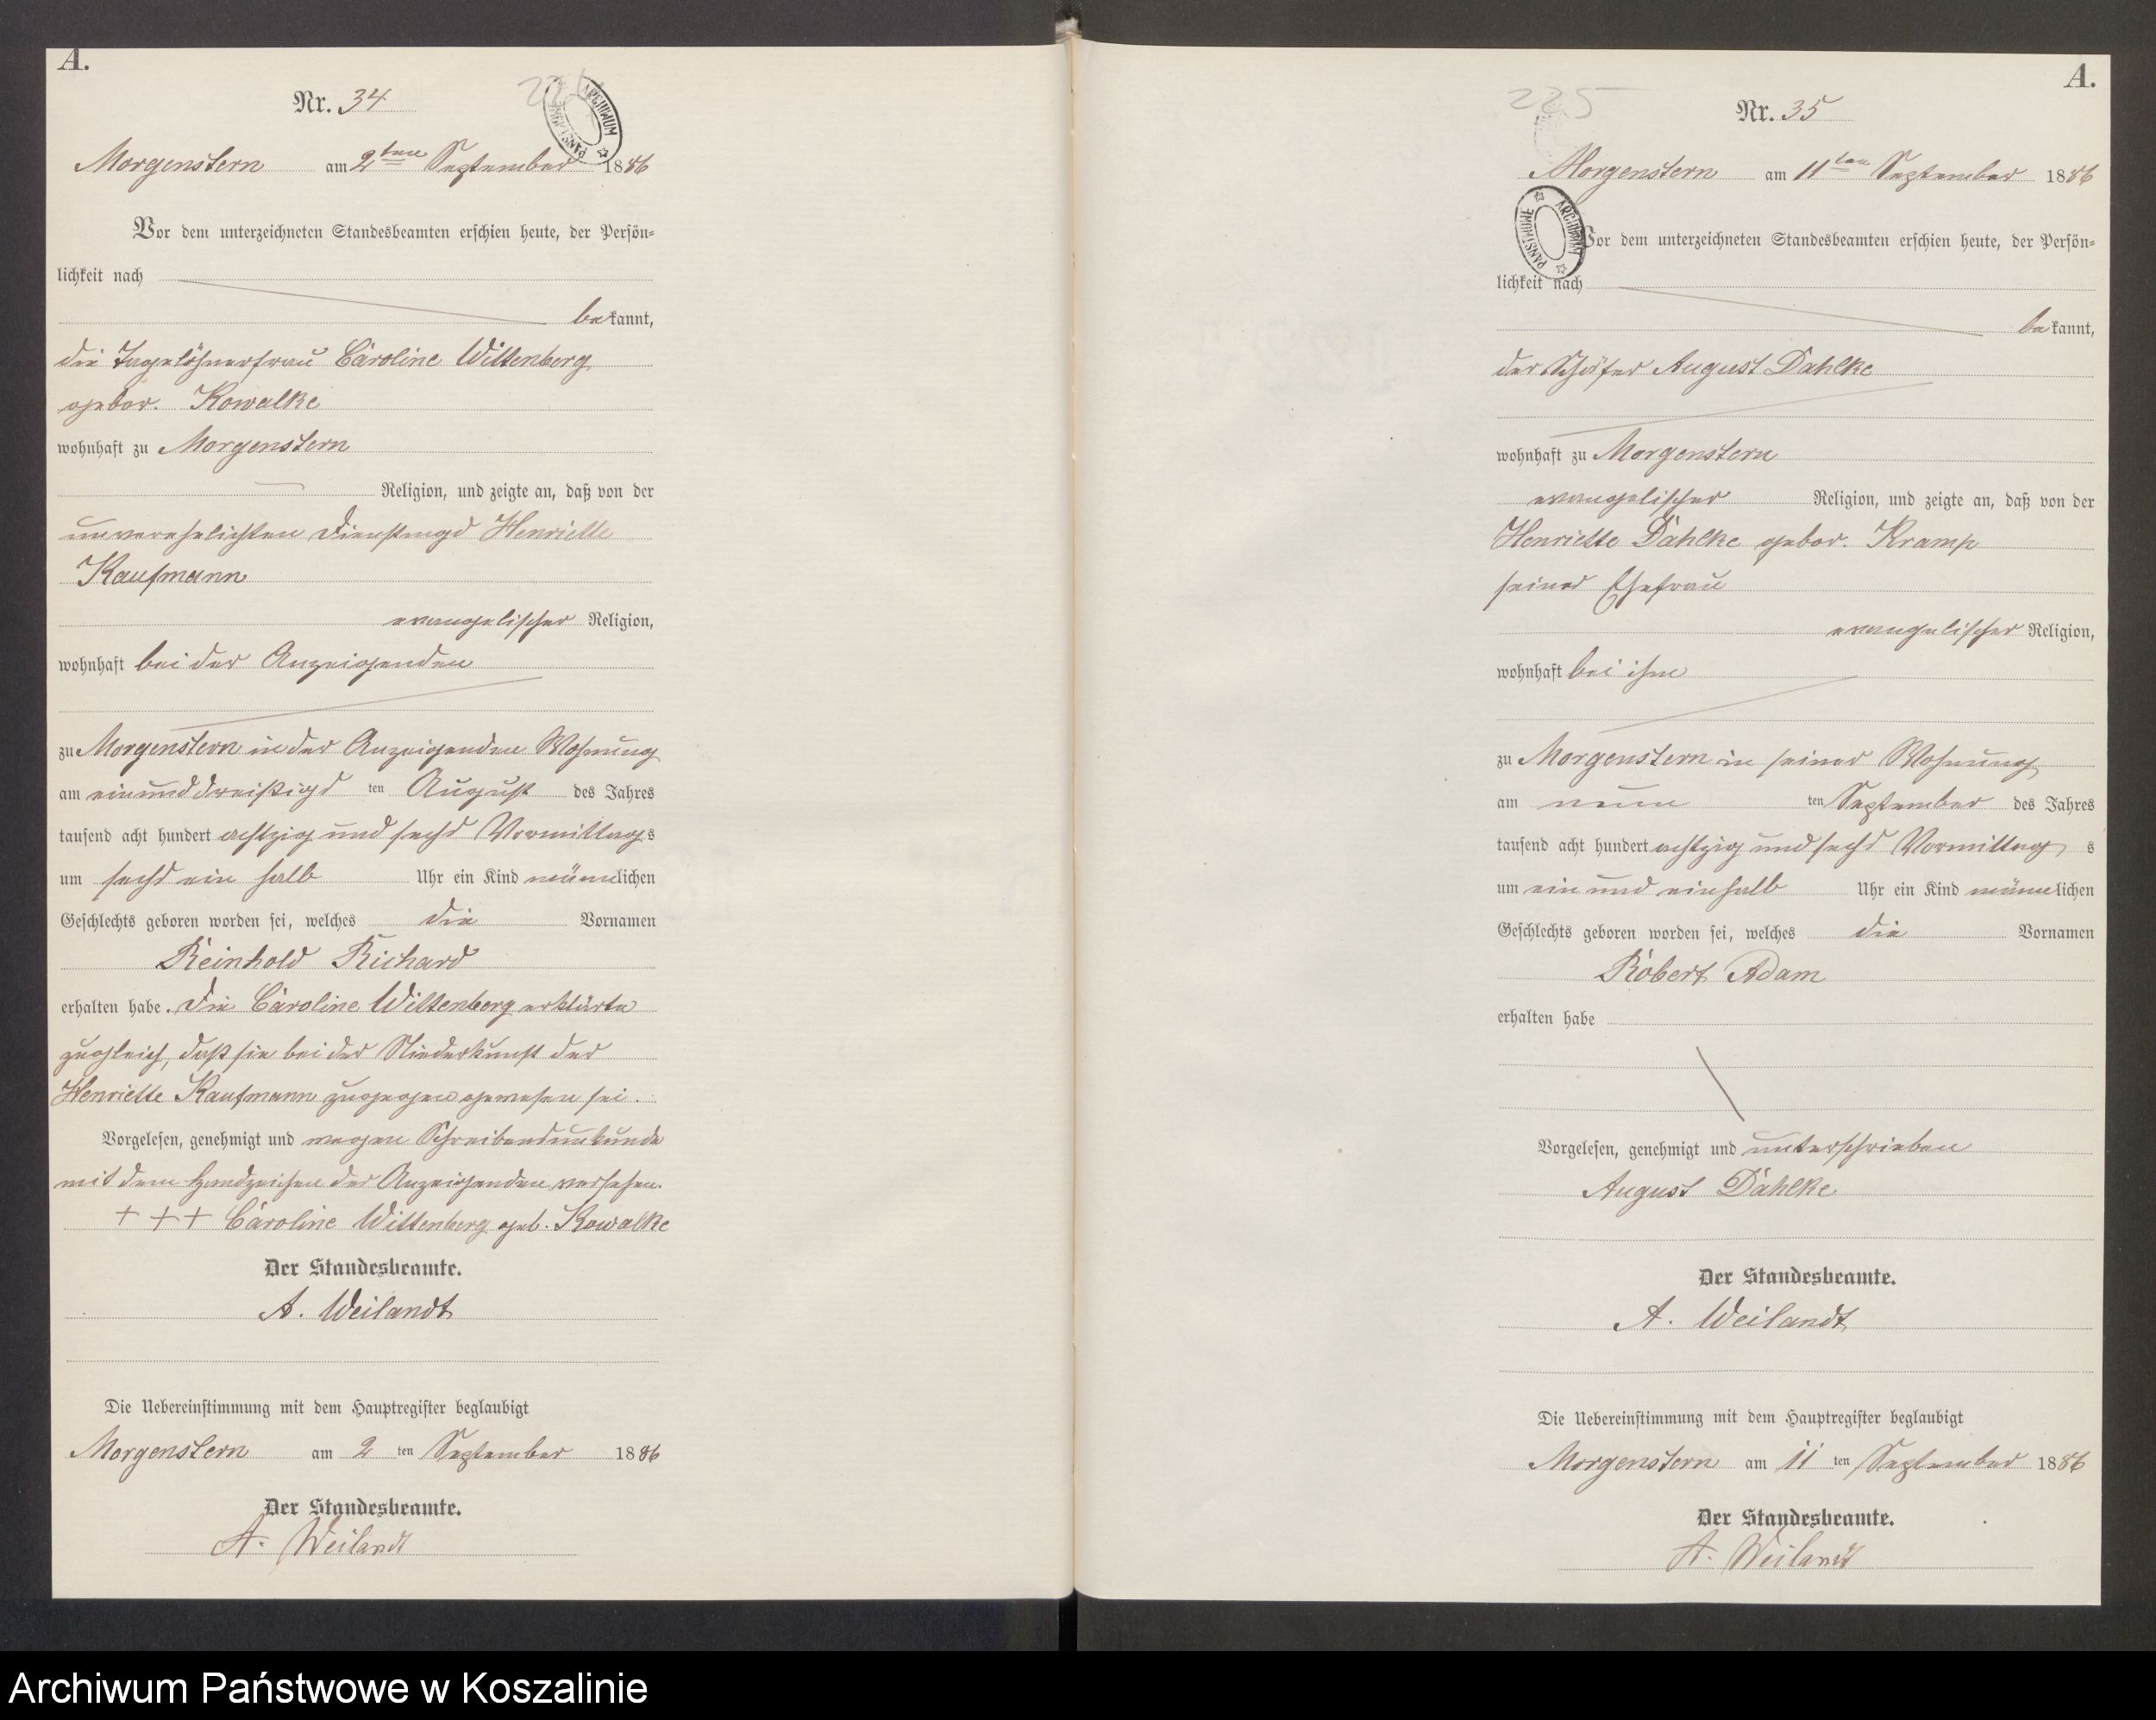 A.
Nr. 34
224
ARCHIWUM PAŃSTWOWE
Morgenstern am 2ten September 1886
Vor dem unterzeichneten Standesbeamten erschien heute, der Persön=
lichkeit nach
bekannt,
die Tagelöhnerfrau Caroline Wittenberg
gebor. Kowalke
wohnhaft zu Morgenstern
Religion, und zeigte an, daß von der
unverehelichten Dienstmagd Henriette
Kaufmann
evangelischer Religion,
wohnhaft bei der Anzeigenden
zu Morgenstern in der Anzeigenden Wohnung
am einunddreißigs ten August des Jahres
tausend acht hundert achtzig und sechs Vormittags
um sechs ein halb Uhr ein Kind männlichen
Geschlechts geboren worden sei, welches die Vornamen
Reinhold Richard
erhalten habe. Die Caroline Wittenberg erklärte
zugleich, daß sie bei der Niederkunft der
Henriette Kaufmann zugegen gewesen sei.
Vorgelesen, genehmigt und wegen Schreibensunkunde
mit dem Handzeichen der Anzeigenden versehen.
+ + + Caroline Wittenberg geb. Kowalke
Der Standesbeamte.
A. Weilandt
Die Uebereinstimmung mit dem Hauptregister beglaubigt
Morgenstern am 2 ten September 1886
Der Standesbeamte.
A. Weilandt
A.
225
Nr. 35
Morgenstern am 11ten September 1886
ARCHIWUM PAŃSTWOWE
Vor dem unterzeichneten Standesbeamten erschien heute, der Persön=
lichkeit nach
bekannt,
der Schäfer August Dahlke
wohnhaft zu Morgenstern
evangelischer Religion, und zeigte an, daß von der
Henriette Dahlke gebor. Kramp
seiner Ehefrau
evangelischer Religion,
wohnhaft bei ihm
zu Morgenstern in seiner Wohnung
am neun ten September des Jahres
tausend acht hundert achtzig und sechs Vormittag s
um ein und einhalb Uhr ein Kind männlichen
Geschlechts geboren worden sei, welches die Vornamen
Robert Adam
erhalten habe
Vorgelesen, genehmigt und unterschrieben
August Dahlke
Der Standesbeamte.
A. Weilandt
Die Uebereinstimmung mit dem Hauptregister beglaubigt
Morgenstern am 11 ten September 1886
Der Standesbeamte.
A. Weilandt
Archiwum Państwowe w Koszalinie